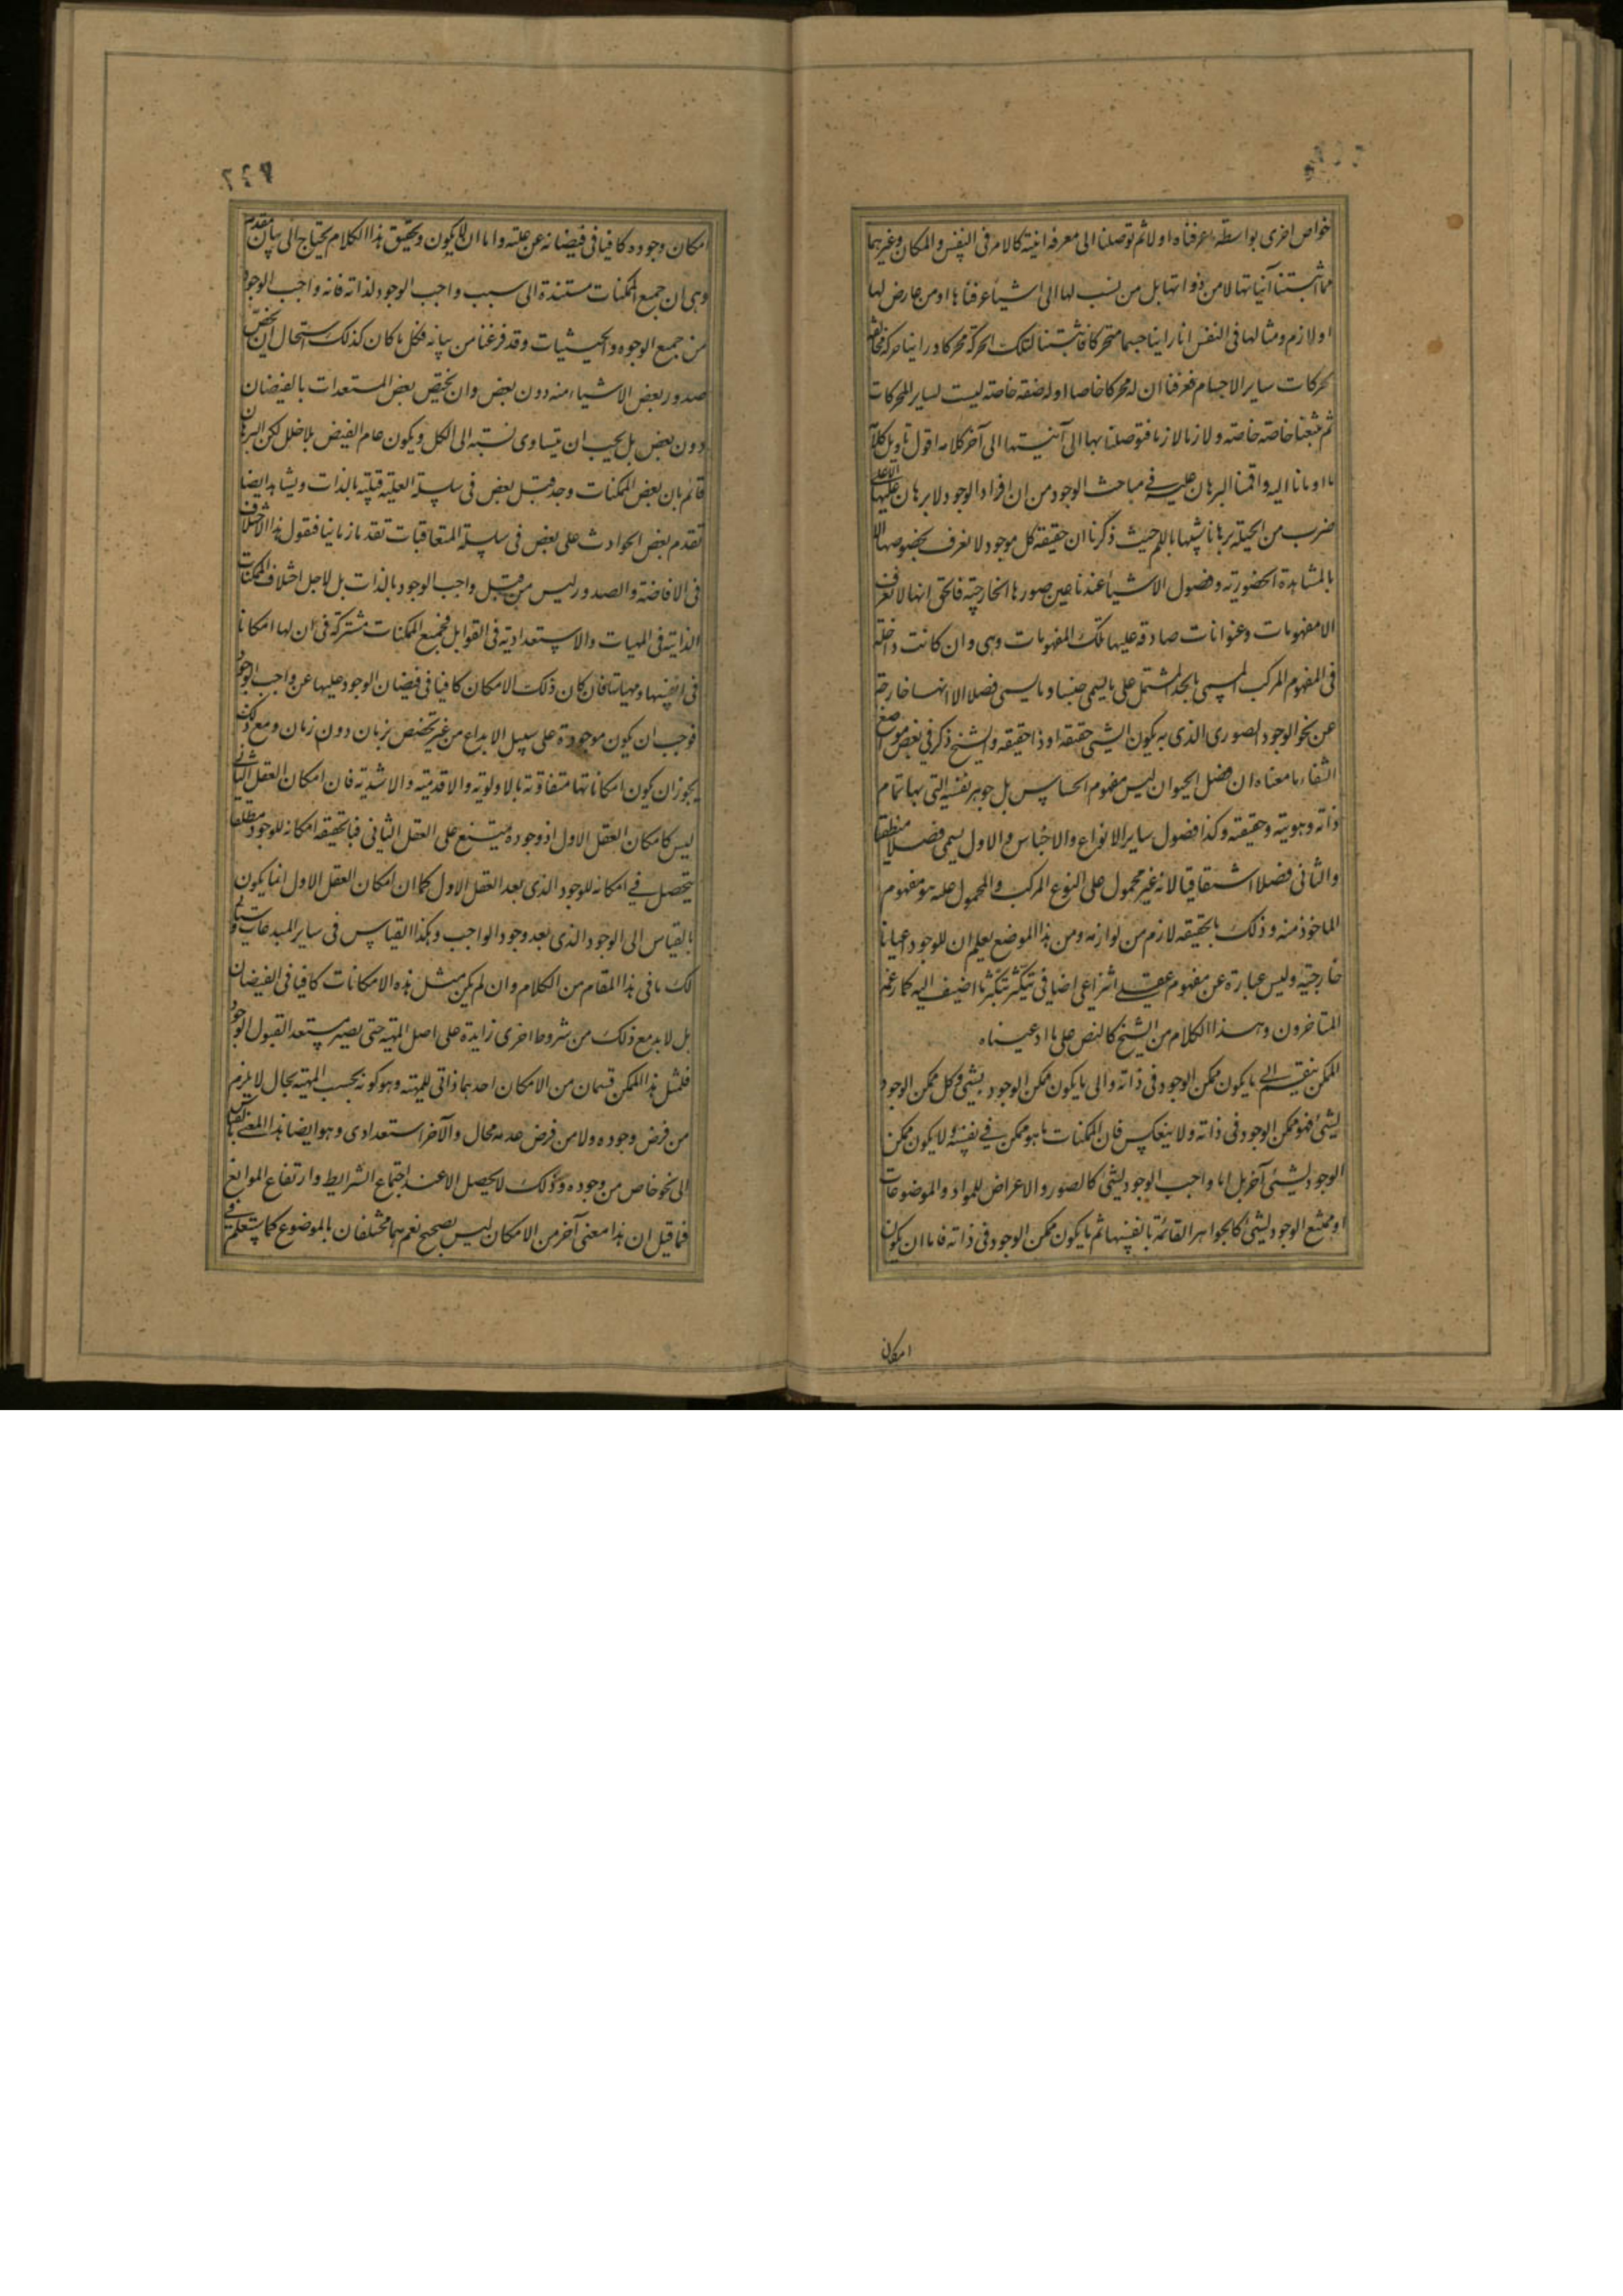 خواص اخرى بواسطة ما عرفناه اولا ثم توصلنا الى معرفة انيته كالامر فى النفس والمكان وغيرهما
مما اثبتنا آنياتها لا من ذواتها بل من نسب لها الى اشياء عرفناها او من عارض لها
او لازم ومثالها فى النفس انا راينا جسما متحركا فاثبتنا لتلك الحركة محركا وراينا حركة مخالفة
لحركات ساير الاجسام فعرفنا ان له محركا خاصا او له صفة خاصة ليست لساير المحركات
ثم تتبعنا خاصة خاصة ولازما لازما فتوصلنا بها الى آنيتها الى آخر كلامه اقول تاويل كلامه
ما اومانا اليه واقمنا البرهان عليه فى مباحث الوجود من ان افراد الوجود لا برهان عليها الا على
ضرب من الحيلة برهانا شبيها باللم حيث ذكرنا ان حقيقة كل موجود لا تعرف بخصوصها الا
بالمشاهدة الحضورية وفصول الاشياء عندنا عين صورها الخارجية فالحق انها لا تعرف
الا مفهومات وعنوانات صادقة عليها تلك المفهومات وهى وان كانت داخلة
فى المفهوم المركب المسمى بالحد المشتمل على ما يسمى جنسا وما يسمى فصلا الا انها خارجة
عن نحو الوجود الصورى الذى به يكون الشىء حقيقة او ذا حقيقة والشيخ ذكر فى بعض مواضع
الشفاء ما معناه ان فصل الحيوان ليس مفهوم الحساس بل جوهر نفسه التى بها تمام
ذاته وهويته وحقيقته وكذا فصول ساير الانواع والاجناس والاول يسمى فصلا منطقيا
والثانى فصلا اشتقاقيا لانه غير محمول على النوع المركب والمحمول عليه هو مفهوم
الماخوذ منه وذلك بالحقيقة لازم من لوازمه ومن هذا الموضع يعلم ان للوجود اعيانا
خارجية وليس عبارة عن مفهوم عقلى انتزاعى اضافى يتكثر بتكثر ما اضيف اليه كما زعمه
المتاخرون وهذا الكلام من الشيخ كالنص على ما ادعيناه
الممكن ينقسم الى ما يكون ممكن الوجود فى ذاته والى ما يكون ممكن الوجود بشىء وكل ممكن الوجود
لشىء فهو ممكن الوجود فى ذاته ولا ينعكس فان الممكنات ما هو ممكن فى نفسه ولا يكون ممكن
الوجود لشىء آخر بل اما واجب الوجود لشىء كالصور والاعراض للمواد والموضوعات
او ممتنع الوجود لشىء كالجواهر القائمة بانفسها ثم ما يكون ممكن الوجود فى ذاته فاما ان يكون
امكان
٢٤٩
امكان وجوده كافيا فى فيضانه عن علته واما ان لا يكون وتحقيق هذا الكلام يحتاج الى بيان مقدمة
وهى ان جميع الممكنات مستندة الى سبب واجب الوجود لذاته فانه واجب الوجود
من جميع الوجوه والحيثيات وقد فرغنا من بيانه فكل ما كان كذلك استحال ان يخص
صدور بعض الاشياء منه دون بعض وان يختص بعض المستعدات بالفيضان
دون بعض بل يجب ان يتساوى نسبته الى الكل ويكون عام الفيض بلا خلل لكن البرهان
قائم بان بعض الممكنات وجد قبل بعض فى سلسلة العلية قبلية بالذات ويشاهد ايضا
تقدم بعض الحوادث على بعض فى سلسلة المتعاقبات تقدما زمانيا فنقول هذا الاختلاف
فى الافاضة والصدور ليس من قبل واجب الوجود بالذات بل لاجل اختلاف الممكنات
الذاتية فى المهيات والاستعدادية فى القوابل فجميع الممكنات مشتركة فى ان لها امكانا
فى انفسها ومهياتها فان كان ذلك الامكان كافيا فى فيضان الوجود عليها عن واجب الوجود
فوجب ان يكون موجودة على سبيل الابداع من غير تخصص بزمان دون زمان ومع ذلك
يجوز ان يكون امكاناتها متفاوتة بالاولوية والاقدمية والاشدية فان امكان العقل الثانى
ليس كامكان العقل الاول اذ وجوده يمتنع على العقل الثانى فبالحقيقة امكانه للوجود مطلقا
يتحصل فى امكانه للوجود الذى بعد العقل الاول كما ان امكان العقل الاول انما يكون
بالقياس الى الوجود الذى بعد وجود الواجب وهكذا القياس فى ساير المبدعات وستاتى
لك ما فى هذا المقام من الكلام وان لم يكن مثل هذه الامكانات كافيا فى الفيضان
بل لا بد مع ذلك من شروط اخرى زايدة على اصل المهية حتى يصير مستعد القبول الوجود
فلمثل هذا الممكن قسمان من الامكان احدهما ذاتى للمهية وهو كونه بحسب المهية بحال لا يلزم
من فرض وجوده ولا من فرض عدمه محال والآخر استعدادى وهو ايضا هذا المعنى بالقياس
الى نحو خاص من وجوده وذلك لا يحصل الا عند اجتماع الشرايط وارتفاع الموانع
فما قيل ان هذا معنى آخر من الامكان ليس بصحيح نعم هما مختلفان بالموضوع كما ستعلم فى